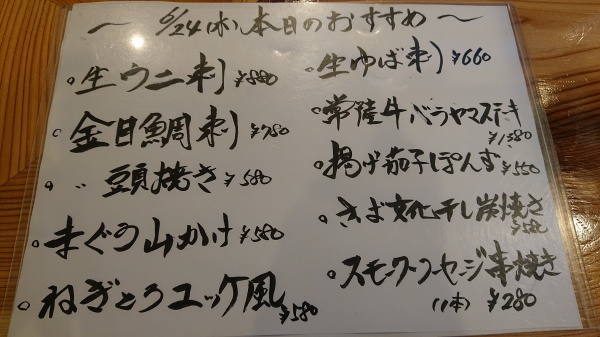 〜 6/24(水)本日のおすすめ 〜
。生ウニ刺 ¥880
。金目鯛刺 ¥780
。〃 頭焼き ¥580
。まぐろ山かけ ¥580
。ねぎとろユッケ風 ¥580
。生ゆば刺 ¥660
。常陸牛バラヤマステーキ ¥1380
。揚げ茄子ぽんず ¥550
。さば文化干し炭焼き
。スモークソーセージ串焼き
(1本) ¥280